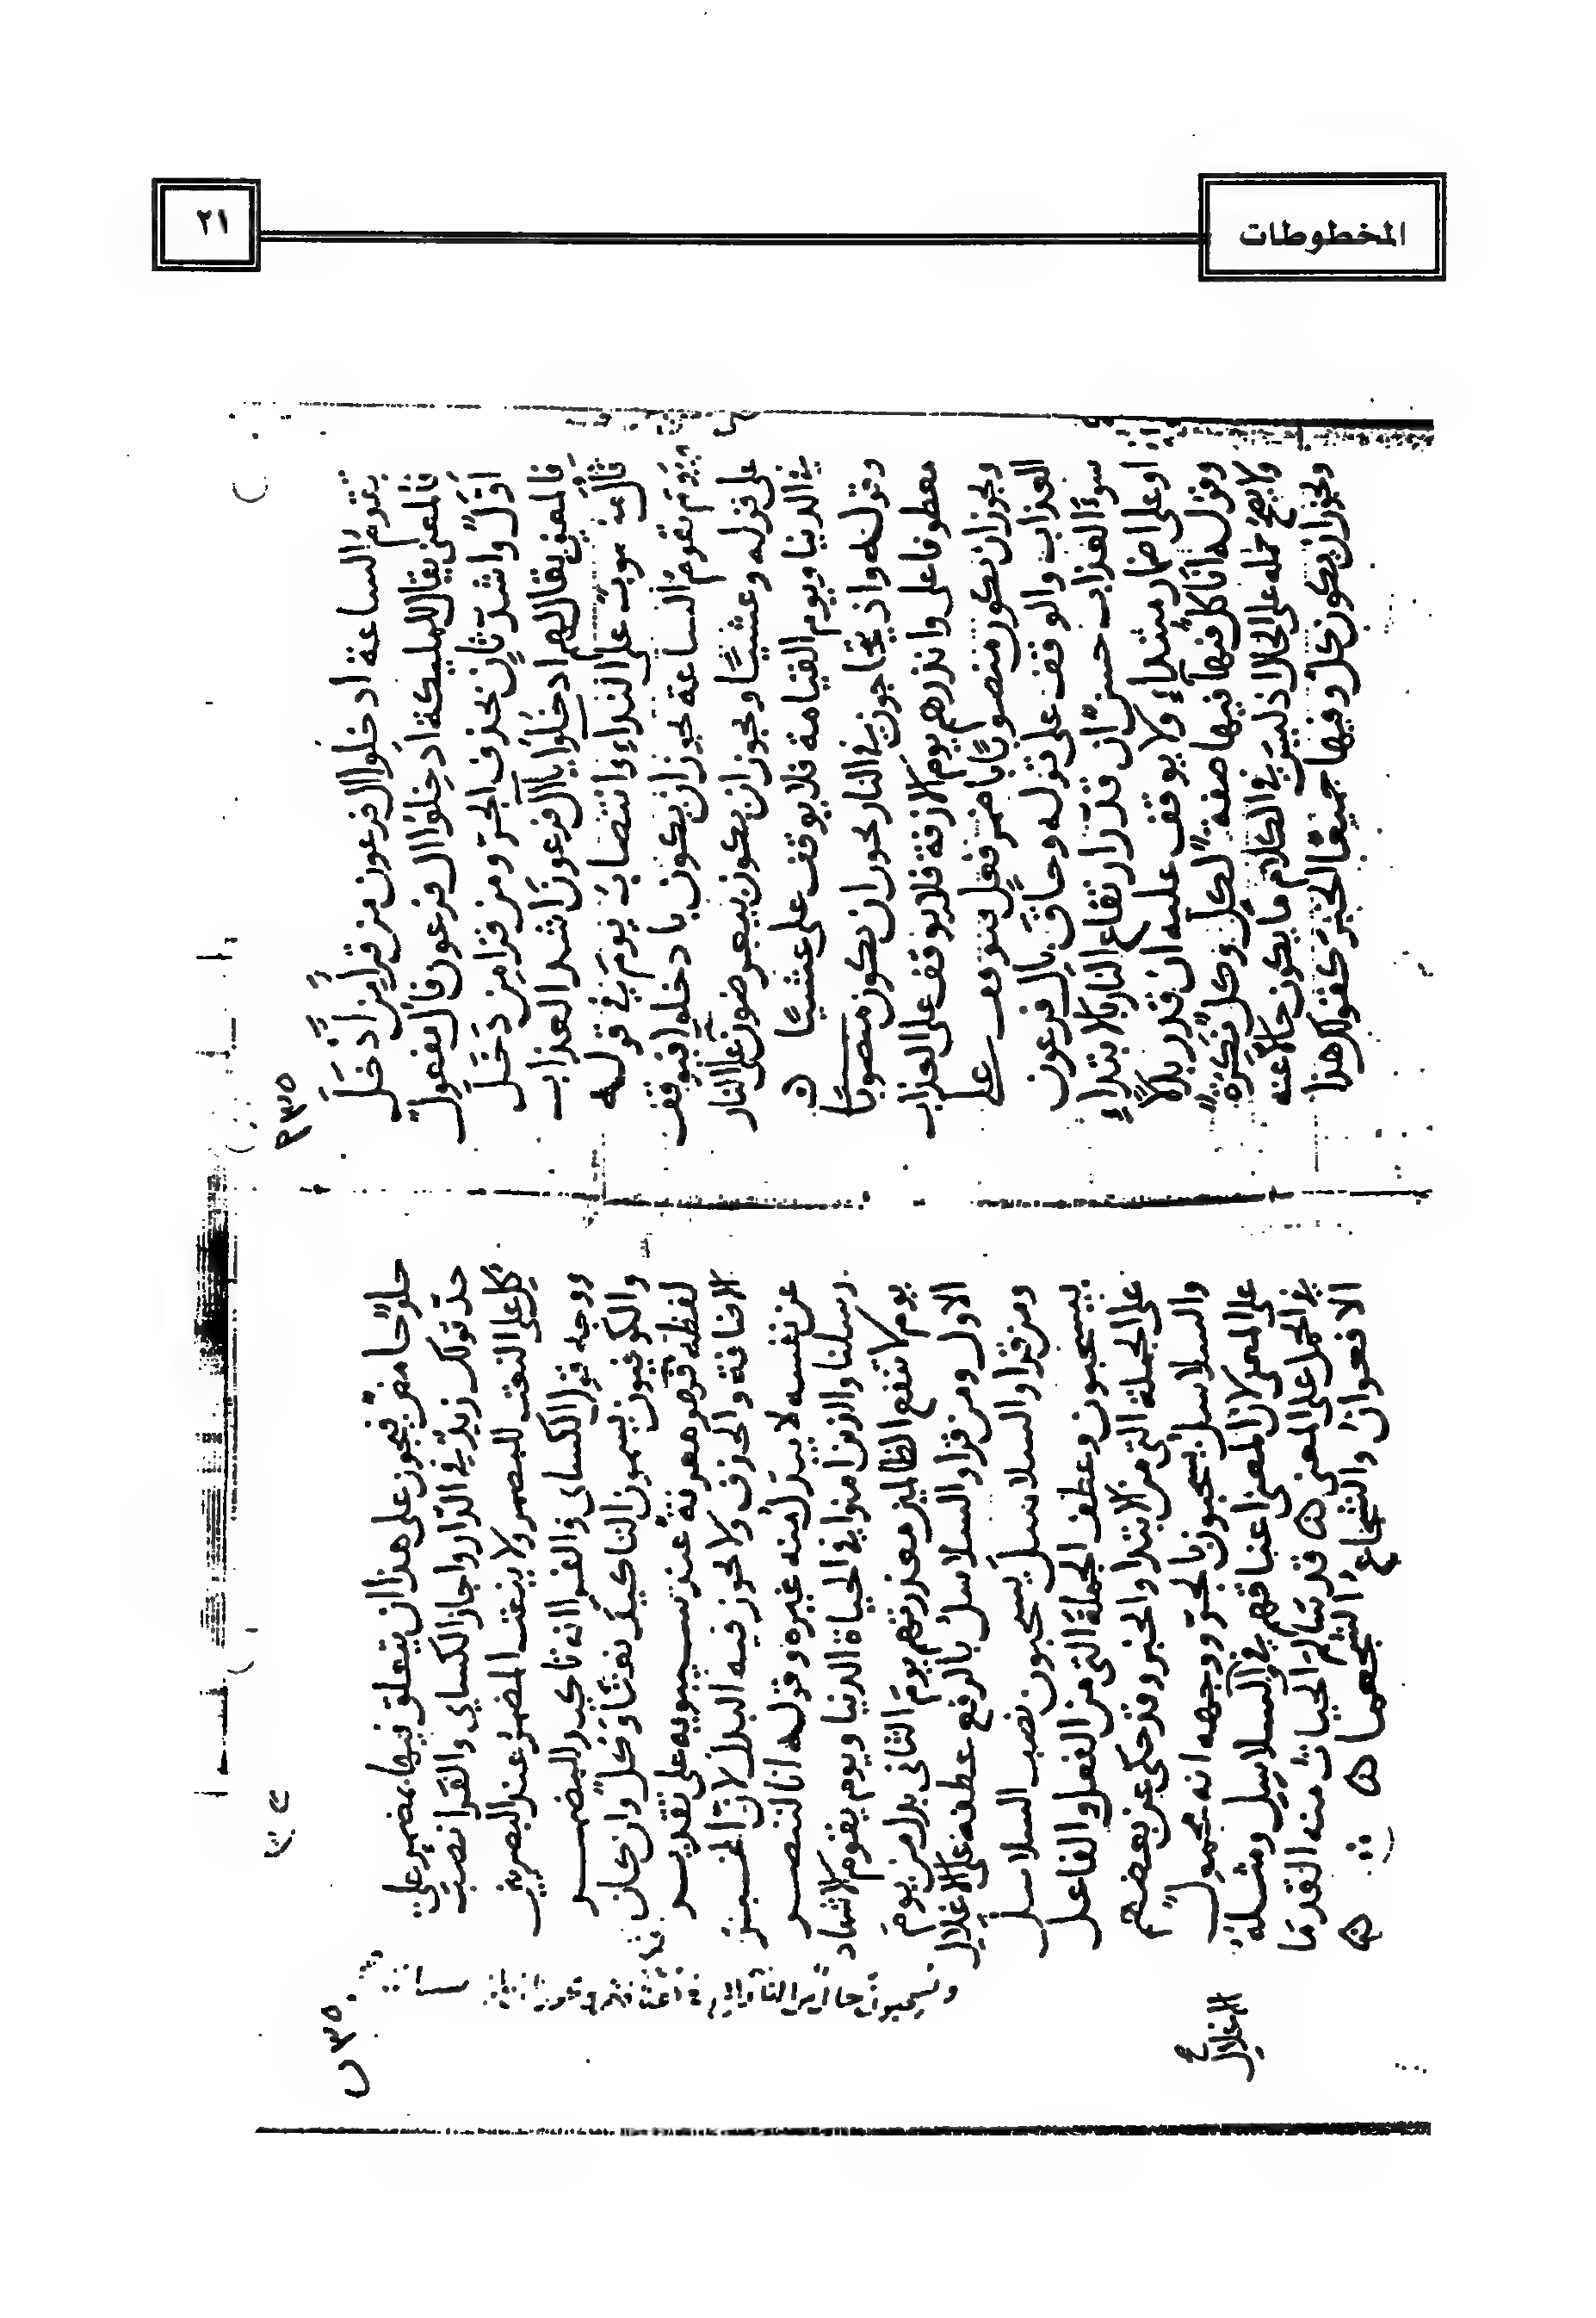 المخطوطات
٢١
تقوم الساعة ادخلوا ال فرعون من قرا من ادخل
فالمعنى يقال للمليكة ادخلوا ال فرعون فال مفعول
اول واشد ثان بحذف الجر ومن قرا من دخل
فالمعنى يقال لهم ادخلوا يا ال فرعون اشد العذاب
فال منصوب على النداء انتصاب يوم في قوله
ويوم تقوم الساعة يجوز ان يكون بادخلوا فيوقف
على قوله وعشيا ويجوز ان يكون بيعرضون على النار
في الدنيا ويوم القيامة فلا يوقف على عشيا ه
وقوله واذ يتحاجون في النار يجوز ان يكون منصوبا
معطوفا على وانذرهم يوم الازفة فلا يوقف على العذاب
ويجوز ان يكون منصوبا باضمر فعل فتوقف على
العذاب والوقف على قوله وحاق بال فرعون
سوء العذاب حسن ان قدر ارتفاع النار بالابتداء
او على اضمار مبتداء ولا يوقف عليه ان قدر بدلا
وقوله انا كل فيها فيها صفة لكل وكل نكرة
ولا يصح حمله على الحال اذ ليس في الكلام ما يكون حالا عنه
ويجوز ان يكون كل وفيها جميعا الخبر كقولك هذا
حلو حامض فيجوز على هذا ان يتعلق فيها بمضمر على
حد قولك زيد في الدار واجاز الكساي والفرا نصب
كل على النعت للمضمر ولا ينعت المضمر عند البصريين
ووجه قول الكساي والفرا انه تاكيد للمضمر
والكوفيون يسمون التاكيد نعتا وكل وان كان
لفظه نكرة فهو معرفة عند سيبويه على تقدير
الاضافة والحذف ولا يجوز فيه البدل لان المخبر
عن نفسه لا يبدل منه غيره وقوله انا لننصر
رسلنا والذين امنوا في الحياة الدنيا ويوم يقوم الاشهاد
يوم لا تنفع الظالمين معذرتهم يوم الثاني بدل من يوم
الاول ومن قرا والسلاسل بالرفع عطفه على الاغلال
ومن قرا والسلاسل يسحبون نصب السلاسل
بيسحبون وعطف الجملة التي من الفعل والفاعل
على الجملة التي من الابتدا والخبر وقد حكي عن بعضهم
والسلاسل يسحبون بالجر ووجهه انه محمول
على المعنى لان المعنى اعناقهم في السلاسل ومثله
في الحمل على المعنى ه قد سالم الحيات منه القدما
الافعوان والشجاع الشجعما ه
الاغلال